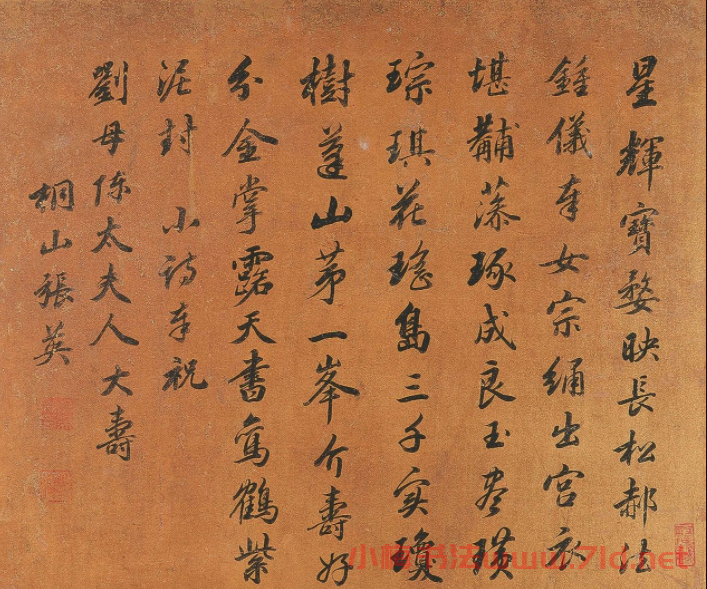 星輝寶婺映長松郝法
鍾儀奉女宗繡出宮衣
堪黼藻琢成良玉盡璜
琮琪花瑤島三千實瓊
樹蓬山第一峯介壽好
分金掌露天書鸞鶴紫
泥封 小詩奉祝
劉母陳太夫人大壽
桐山張英
小楷书法www.7ld.net